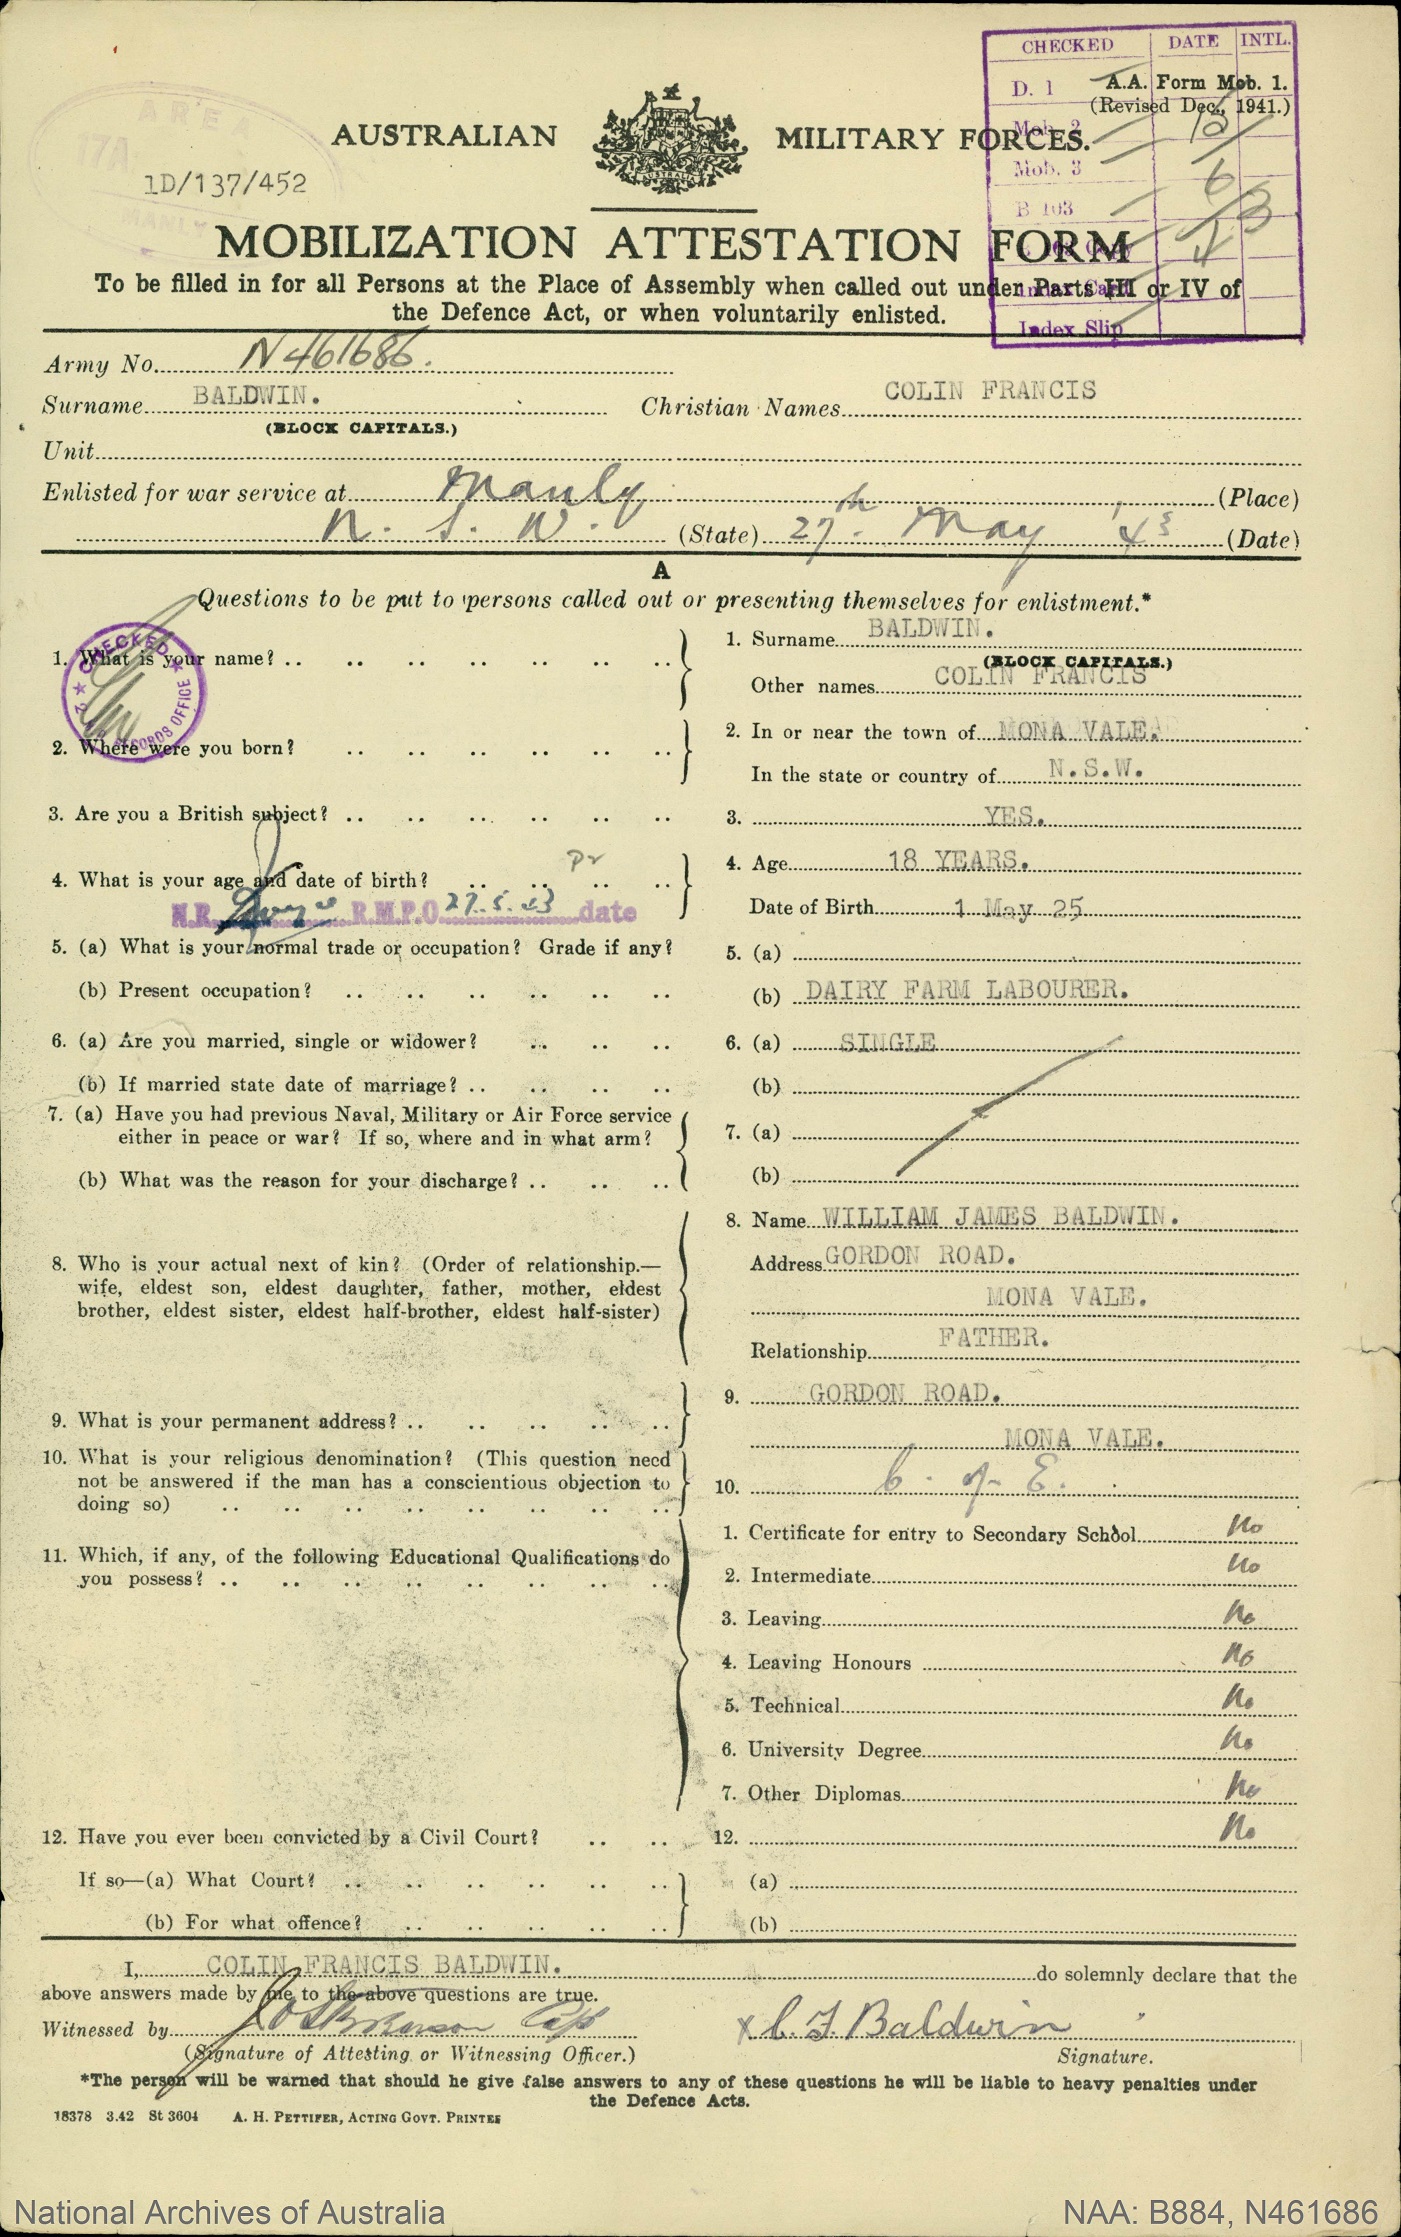 CHECKED DATE INTL.
D. 1
A.A. Form Mob. 1.
(Revised Dec., 1941.)
Mob. 2
Mob. 3
B 103
Index Slip
AUSTRALIAN MILITARY FORCES.
1D/137/452
MANLY
MOBILIZATION ATTESTATION FORM
To be filled in for all Persons at the Place of Assembly when called out under Parts III or IV of
the Defence Act, or when voluntarily enlisted.
Army No. N461686.
Surname BALDWIN. Christian Names COLIN FRANCIS
(BLOCK CAPITALS.)
Unit
Enlisted for war service at Manly (Place)
N. S. W. (State) 27th May '43 (Date)
A
Questions to be put to persons called out or presenting themselves for enlistment.*
CHECKED
RECORDS OFFICE
1. What is your name? 1. Surname BALDWIN.
(BLOCK CAPITALS.)
Other names COLIN FRANCIS
2. Where were you born? 2. In or near the town of MONA VALE.
In the state or country of N.S.W.
3. Are you a British subject? 3. YES.
4. What is your age and date of birth? 4. Age 18 YEARS.
Date of Birth 1 May 25
N.R. R.M.P.O 27.5.43 date
5. (a) What is your normal trade or occupation? Grade if any? 5. (a)
(b) Present occupation? (b) DAIRY FARM LABOURER.
6. (a) Are you married, single or widower? 6. (a) SINGLE
(b) If married state date of marriage? (b)
7. (a) Have you had previous Naval, Military or Air Force service
either in peace or war? If so, where and in what arm? 7. (a)
(b) What was the reason for your discharge? (b)
8. Name WILLIAM JAMES BALDWIN.
8. Who is your actual next of kin? (Order of relationship.— Address GORDON ROAD.
wife, eldest son, eldest daughter, father, mother, eldest MONA VALE.
brother, eldest sister, eldest half-brother, eldest half-sister)
Relationship FATHER.
9. What is your permanent address? 9. GORDON ROAD.
MONA VALE.
10. What is your religious denomination? (This question need
not be answered if the man has a conscientious objection to 10. C. of E.
doing so)
11. Which, if any, of the following Educational Qualifications do
you possess?
1. Certificate for entry to Secondary School No
2. Intermediate No
3. Leaving No
4. Leaving Honours No
5. Technical No
6. University Degree No
7. Other Diplomas No
12. Have you ever been convicted by a Civil Court? 12. No
If so—(a) What Court? (a)
(b) For what offence? (b)
I, COLIN FRANCIS BALDWIN. do solemnly declare that the
above answers made by me to the above questions are true.
Witnessed by Cap x C. F. Baldwin
(Signature of Attesting or Witnessing Officer.) Signature.
*The person will be warned that should he give false answers to any of these questions he will be liable to heavy penalties under
the Defence Acts.
18378 3.42 St 3604 A. H. PETTIFER, ACTING GOVT. PRINTER
National Archives of Australia NAA: B884, N461686